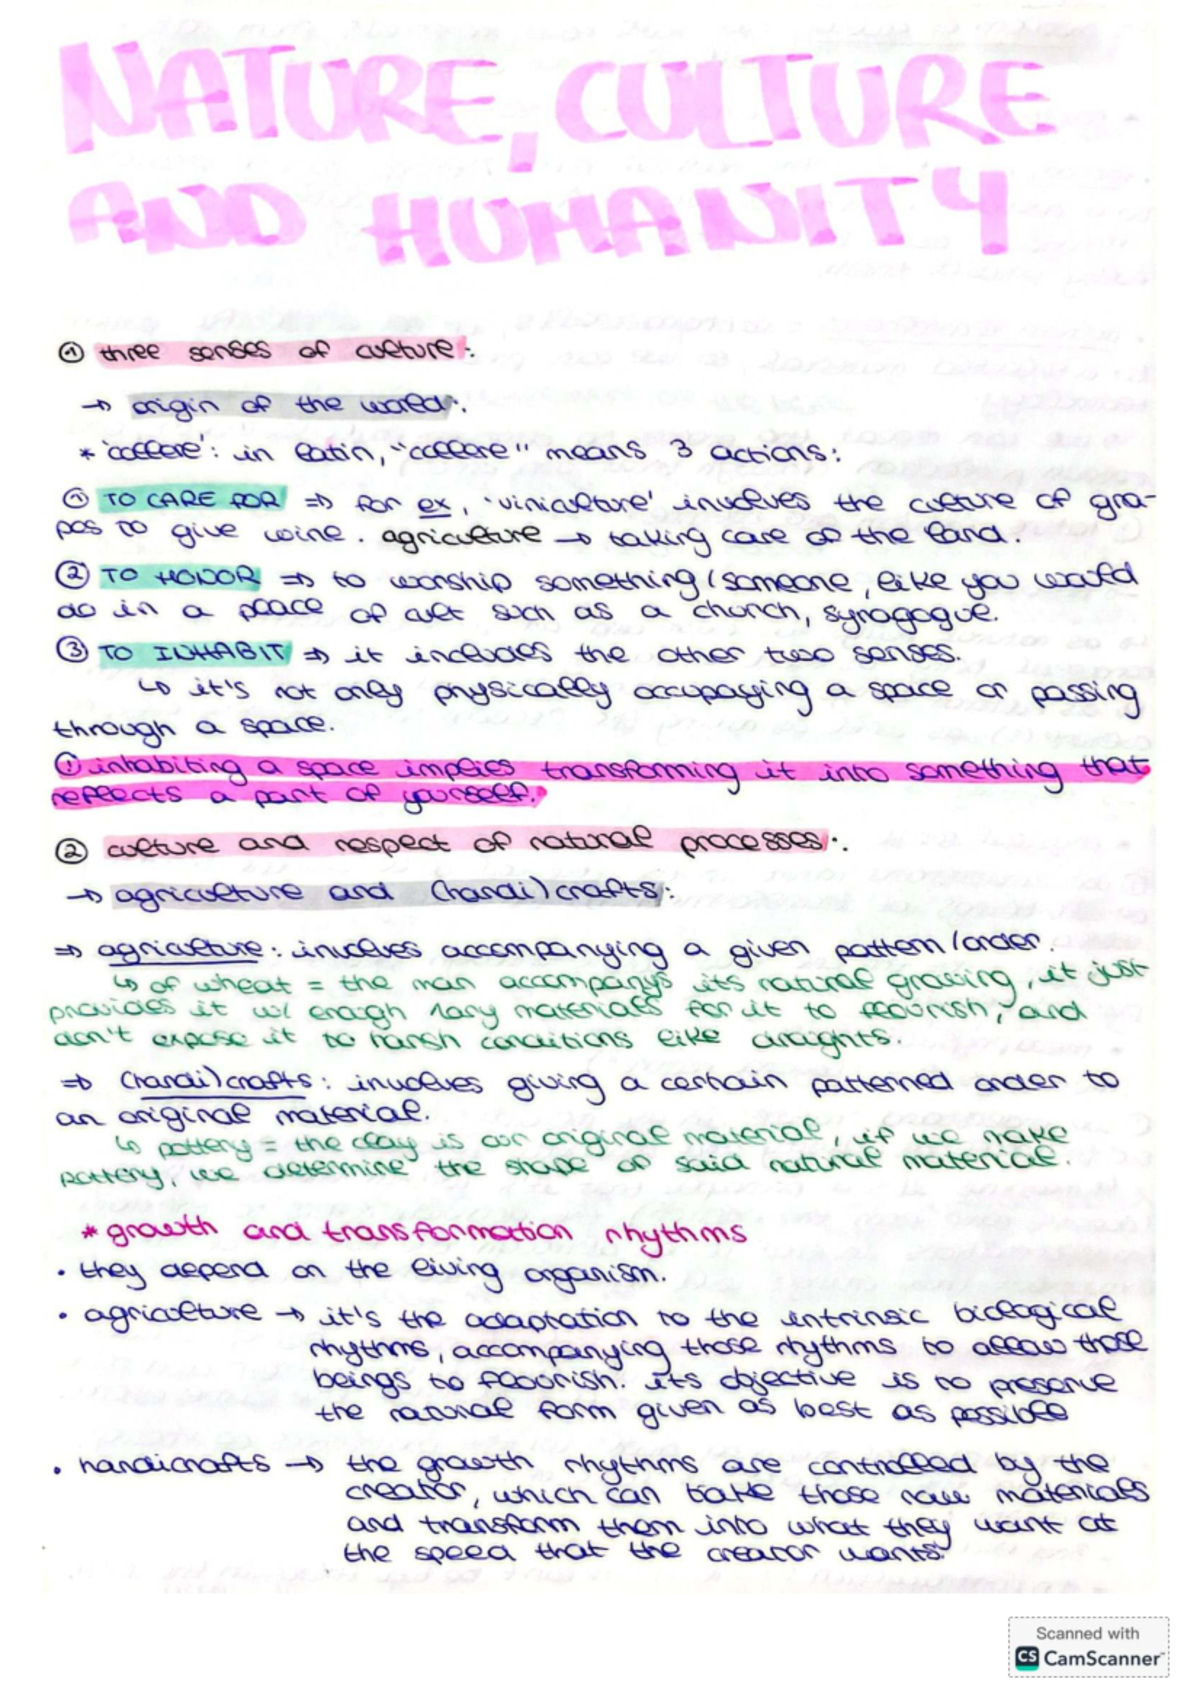 NATURE, CULTURE
AND HUMANITY
① three senses of culture:.
→ origin of the world:.
* 'collere': in latin, "collere" means 3 actions:
① TO CARE FOR ⇒ for ex, 'viniculture' involves the culture of gra-
pes to give wine. agriculture → taking care of the land.
② TO HONOR ⇒ to worship something/someone, like you would
do in a place of cult such as a church, synagogue.
③ TO INHABIT ⇒ it includes the other two senses.
↳ it's not only physically occupaying a space or passing
through a space.
! inhabiting a space implies transforming it into something that
reflects a part of yourself.
② culture and respect of natural processes:.
→ agriculture and (handi)crafts:
⇒ agriculture: involves accompanying a given pattern/order.
↳ of wheat = the man accompanys its natural growing, it just
provides it w/ enough raw materials for it to flourish, and
don't expose it to harsh conditions like droughts.
⇒ (handi)crafts: involves giving a certain patterned order to
an original material.
↳ pottery = the clay is our original material, if we make
pottery, we determine the shape of said natural material.
* growth and transformation rhythms
• they depend on the living organism.
• agriculture → it's the adaptation to the intrinsic biological
rhythms, accompanying those rhythms to allow those
beings to flourish. its objective is to preserve
the natural form given as best as possible
• handicrafts → the growth rhythms are controlled by the
creator, which can take those raw materials
and transform them into what they want at
the speed that the creator wants.
Scanned with
CS CamScanner